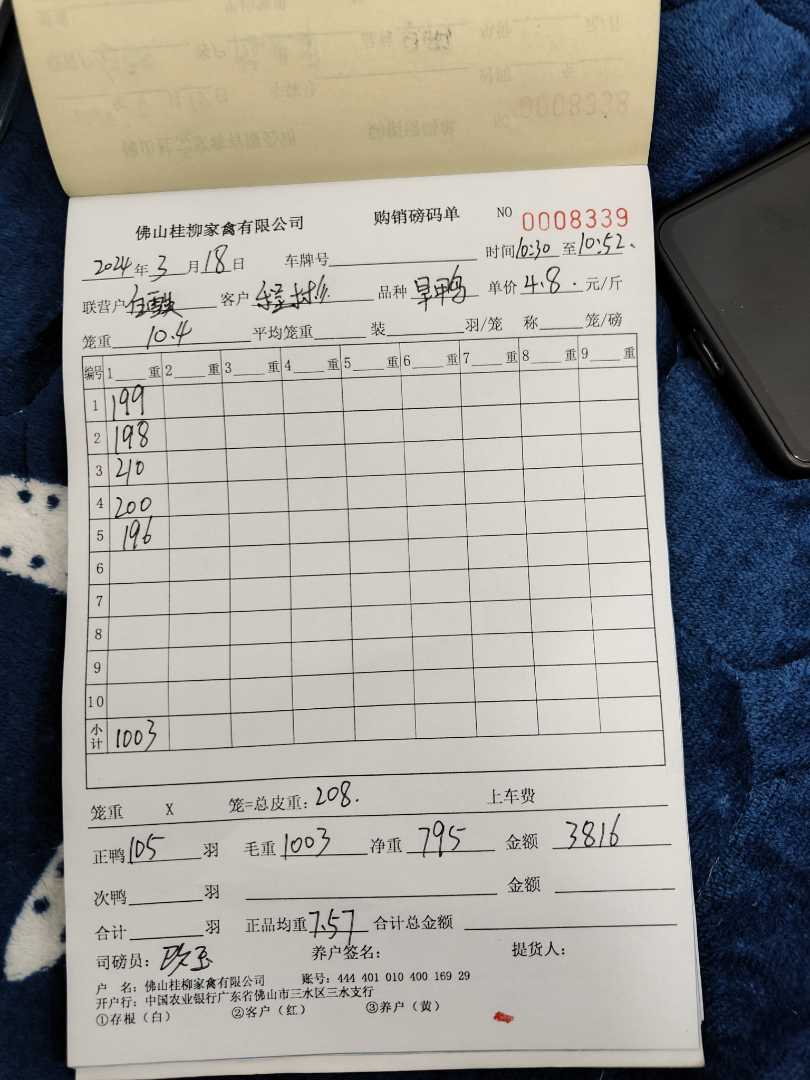 佛山桂柳家禽有限公司 购销磅码单 NO 0008339
2024年3月18日 车牌号 时间10:30至10:52.
联营户 客户 品种旱鸭 单价4.8.元/斤
笼重10.4平均笼重 装 羽/笼 称 笼/磅
编号 1 重 2 重 3 重 4 重 5 重 6 重 7 重 8 重 9 重
1 199
2 198
3 210
4 200
5 196
6
7
8
9
10
小计 1003
笼重 X 笼=总皮重:208. 上车费
正鸭105羽 毛重1003 净重795 金额3816
次鸭 羽 金额
合计 羽 正品均重7.57 合计总金额
司磅员: 养户签名: 提货人:
户 名:佛山桂柳家禽有限公司 账号:444 401 010 400 169 29
开户行:中国农业银行广东省佛山市三水区三水支行
①存根(白) ②客户(红) ③养户(黄)